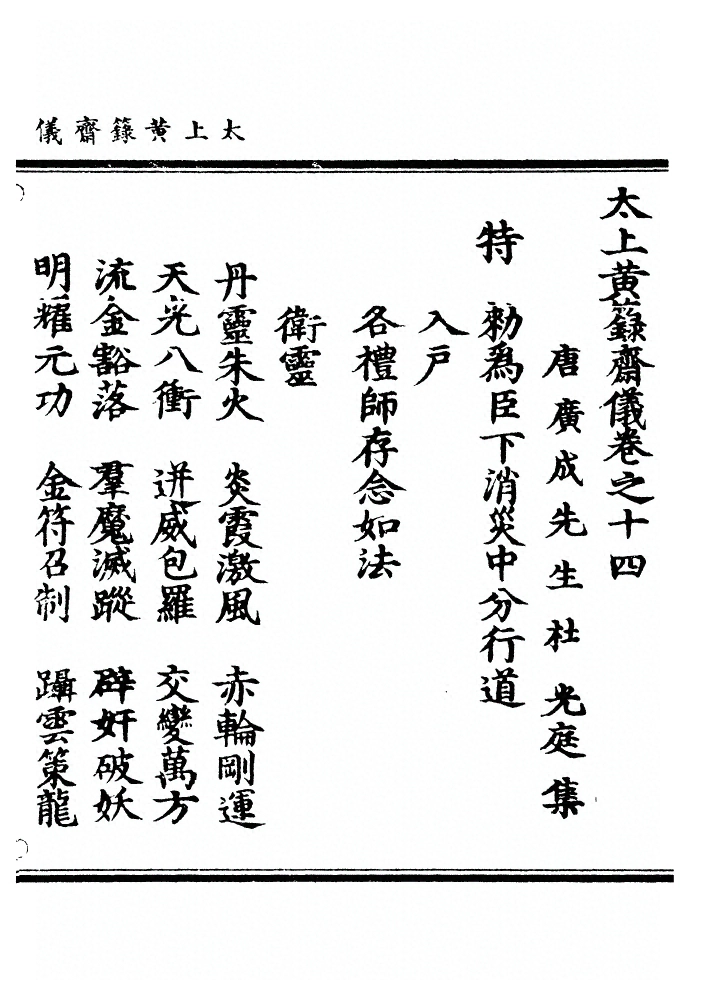 太上黄籙齋儀
太上黄籙齋儀卷之十四
唐廣成先生杜光庭集
特 勅爲臣下消災中分行道
入戸
各禮師存念如法
衛靈
丹靈朱火 炎霞激風 赤輪剛運
天光八衝 迸威包羅 交變萬方
流金豁落 羣魔滅蹤 辟奸破妖
明耀元功 金符召制 躡雲策龍